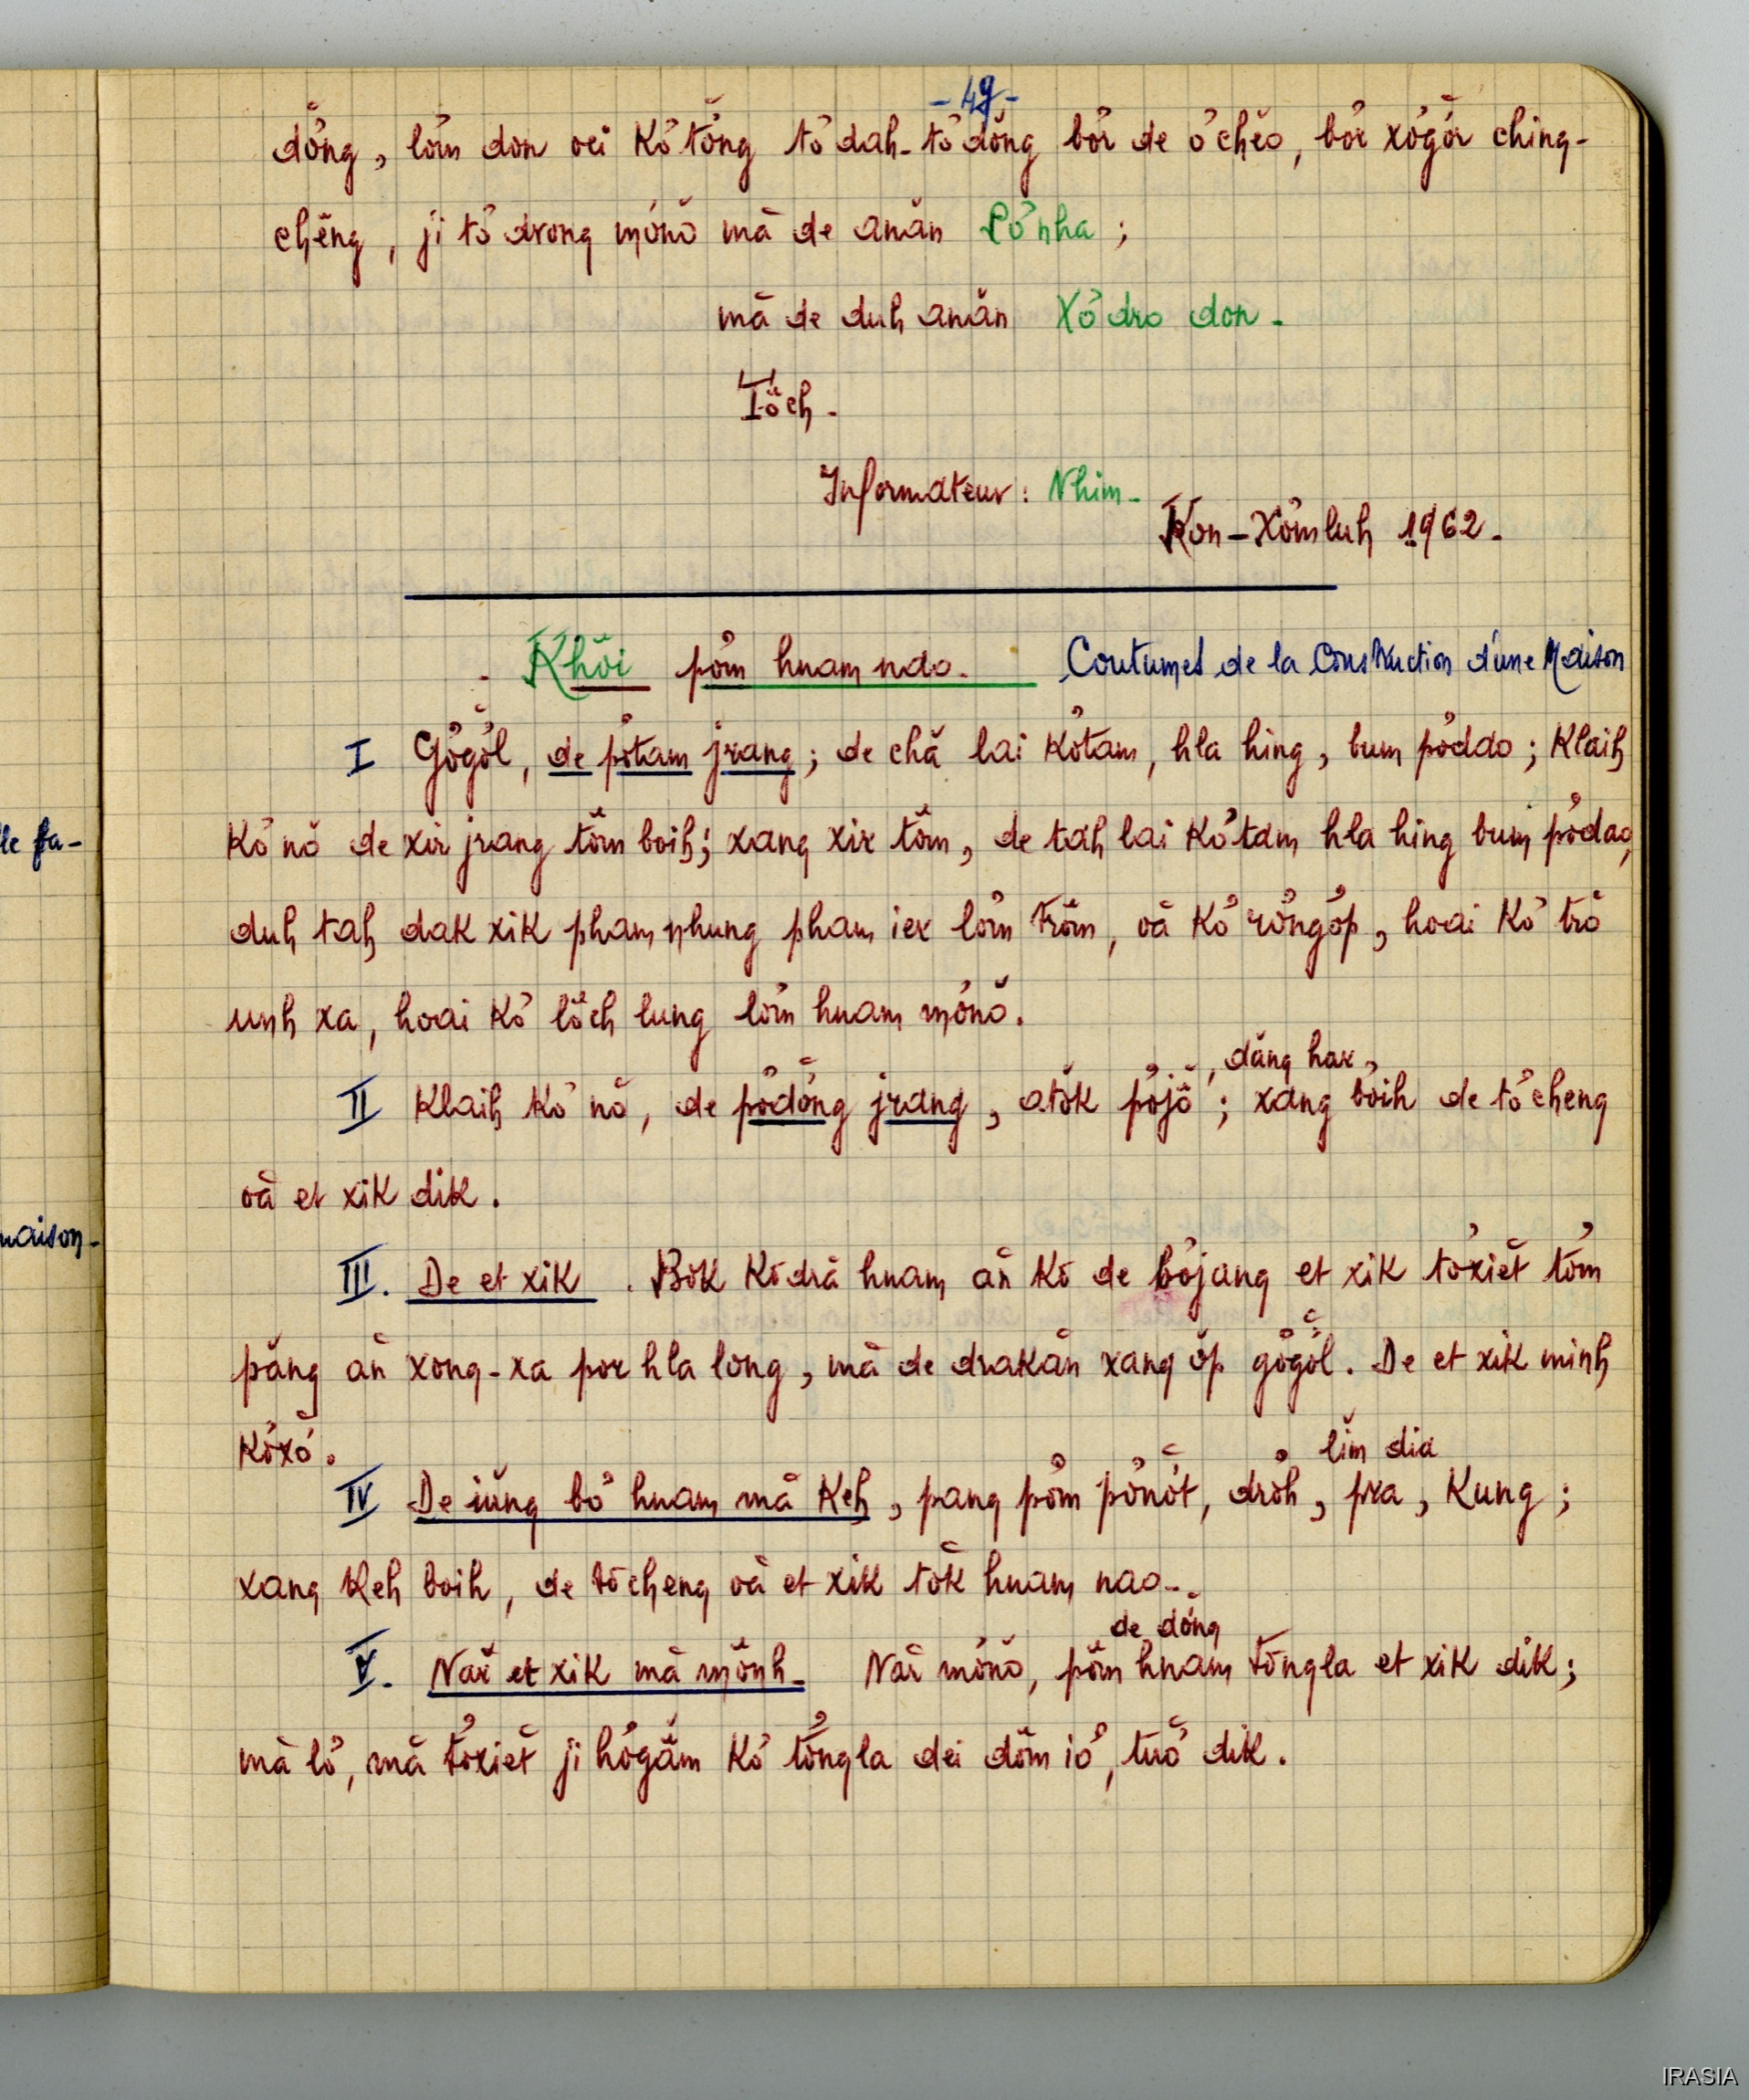 - 49 -
dơ̆ng, lơ̆m don oei kơ tơ̆ng tơ dah-tơ dơ̆ng bơ̆r de ơ chĕo, bơ̆r xơgơ̆r ching-
chêng, ji tơ drong mơnŏ mă de anăn Pơ nha ;
mă de duh anăn Xơ dro don -
Tŏch -
Informateur : Nhim -
Kon - Xơmluh 1962 -
- Khôi pơm hnam nao. Coutumes de la Construction d'une Maison
I Gơgơ̆l, de pơtam jrang ; de chă lai kơtam, hla hing, bum pơdao ; Klaih
kơ nŏ de xir jrang tŏm boih ; xang xir tŏm, de tah lai kơ tam hla hing bum pơdao,
duh tah dak xik pham nhung pham ier lơ̆m trŏm, oă kơ rơngơ̆p, hoai kơ trŏ
unh xa, hoai kơ lŏch lung lơ̆m hnam mơnŏ.
dăng har,
II Klaih kơ nŏ, de pơdơ̆ng jrang, atŏk pơjŏ ; xang boih de tơcheng
oă et xik dik.
III. De et xik . Bŏk kơdră hnam ăn kơ de bơjang et xik tơxiĕt tơm
păng ăn xong-xa por hla long, mă de drakăn xang ŏp gơgơ̆l. De et xik minh
kơxơ̆.
lĭm dia
IV De iŭng bơ hnam mă keh, pang pơm pơnơ̆t, drŏh, pra, kung ;
xang keh boih, de tơcheng oă et xik tŏk hnam nao -.
de dơ̆ng
V. Năr et xik mă mŏnh - Năr mơnŏ, pơm hnam tơngla et xik dik ;
mă lơ, mă tơxiĕt ji hơgăm kơ tơngla dei dŏm iơ, tuơ̆ dik.
le fa-
maison-
IRASIA